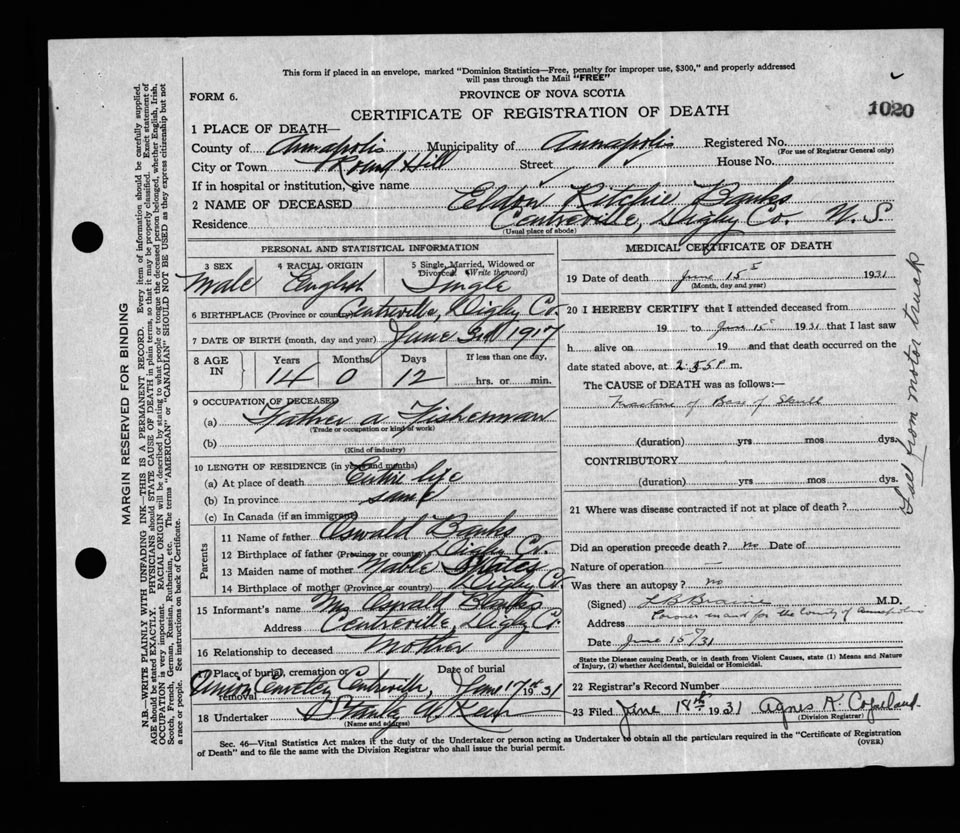 This form if placed in an envelope, marked "Dominion Statistics—Free, penalty for improper use, $300," and properly addressed
will pass through the Mail "FREE"
FORM 6.
PROVINCE OF NOVA SCOTIA
CERTIFICATE OF REGISTRATION OF DEATH
1020
1 PLACE OF DEATH—
County of Annapolis Municipality of Annapolis Registered No.
(For use of Registrar General only)
City or Town Round Hill Street House No.
If in hospital or institution, give name
2 NAME OF DECEASED Eldon Ritchie Banks
Residence Centreville, Digby Co. N.S.
(Usual place of abode)
PERSONAL AND STATISTICAL INFORMATION
3 SEX 4 RACIAL ORIGIN 5 Single, Married, Widowed or
Divorced (Write the word)
Male English Single
6 BIRTHPLACE (Province or country) Centreville, Digby Co.
7 DATE OF BIRTH (month, day and year) June 3rd 1917
8 AGE IN Years Months Days If less than one day,
14 0 12 hrs. or min.
9 OCCUPATION OF DECEASED
(a) Father a Fisherman
(Trade or occupation or kind of work)
(b)
(Kind of industry)
10 LENGTH OF RESIDENCE (in years and months)
(a) At place of death Entire life
(b) In province same
(c) In Canada (if an immigrant)
Parents
11 Name of father Oswald Banks
12 Birthplace of father (Province or country) Digby Co.
13 Maiden name of mother
14 Birthplace of mother (Province or country) Digby Co.
15 Informant's name Mrs Oswald Banks
Address Centreville, Digby Co.
16 Relationship to deceased Mother
17 Place of burial, cremation or removal Date of burial
Union Cemetery Centreville, June 17th 1931
18 Undertaker Stanley
(Name and address)
MEDICAL CERTIFICATE OF DEATH
19 Date of death June 15 1931
(Month, day and year)
20 I HEREBY CERTIFY that I attended deceased from
19 to June 15 1931 that I last saw
h alive on 19 and that death occurred on
date stated above, at P m.
The CAUSE of DEATH was as follows:—
Fracture of Base of Skull
(duration) yrs mos dys.
CONTRIBUTORY
(duration) yrs. mos. dys.
Fall from motor truck
21 Where was disease contracted if not at place of death?
Did an operation precede death? no Date of
Nature of operation —
Was there an autopsy? no
(Signed) L B Braine M.D.
Address Coroner in and for the County of Annapolis
Date June 15/31
State the Disease causing Death, or in death from Violent Causes, state (1) Means and Nature
of Injury, (2) whether Accidental, Suicidal or Homicidal.
22 Registrar's Record Number
23 Filed June 18th 1931 Agnes K. Copeland
(Division Registrar)
Sec. 46—Vital Statistics Act makes it the duty of the Undertaker or person acting as Undertaker to obtain all the particulars required in the "Certificate of Registration
of Death" and to file the same with the Division Registrar who shall issue the burial permit.
(OVER)
MARGIN RESERVED FOR BINDING
N.B.—WRITE PLAINLY WITH UNFADING INK—THIS IS A PERMANENT RECORD. Every item of information should be carefully supplied.
AGE should be stated EXACTLY. PHYSICIANS should STATE CAUSE OF DEATH in plain terms, so that it may be properly classified. Exact statement of
OCCUPATION is very important. RACIAL ORIGIN will be described by stating to what people or tongue the deceased person belonged, whether English, Irish,
Scotch, French, German, Russian, Ruthenian, etc. The terms "AMERICAN" or "CANADIAN" SHOULD NOT BE USED as they express citizenship but not
a race or people. See instructions on back of Certificate.